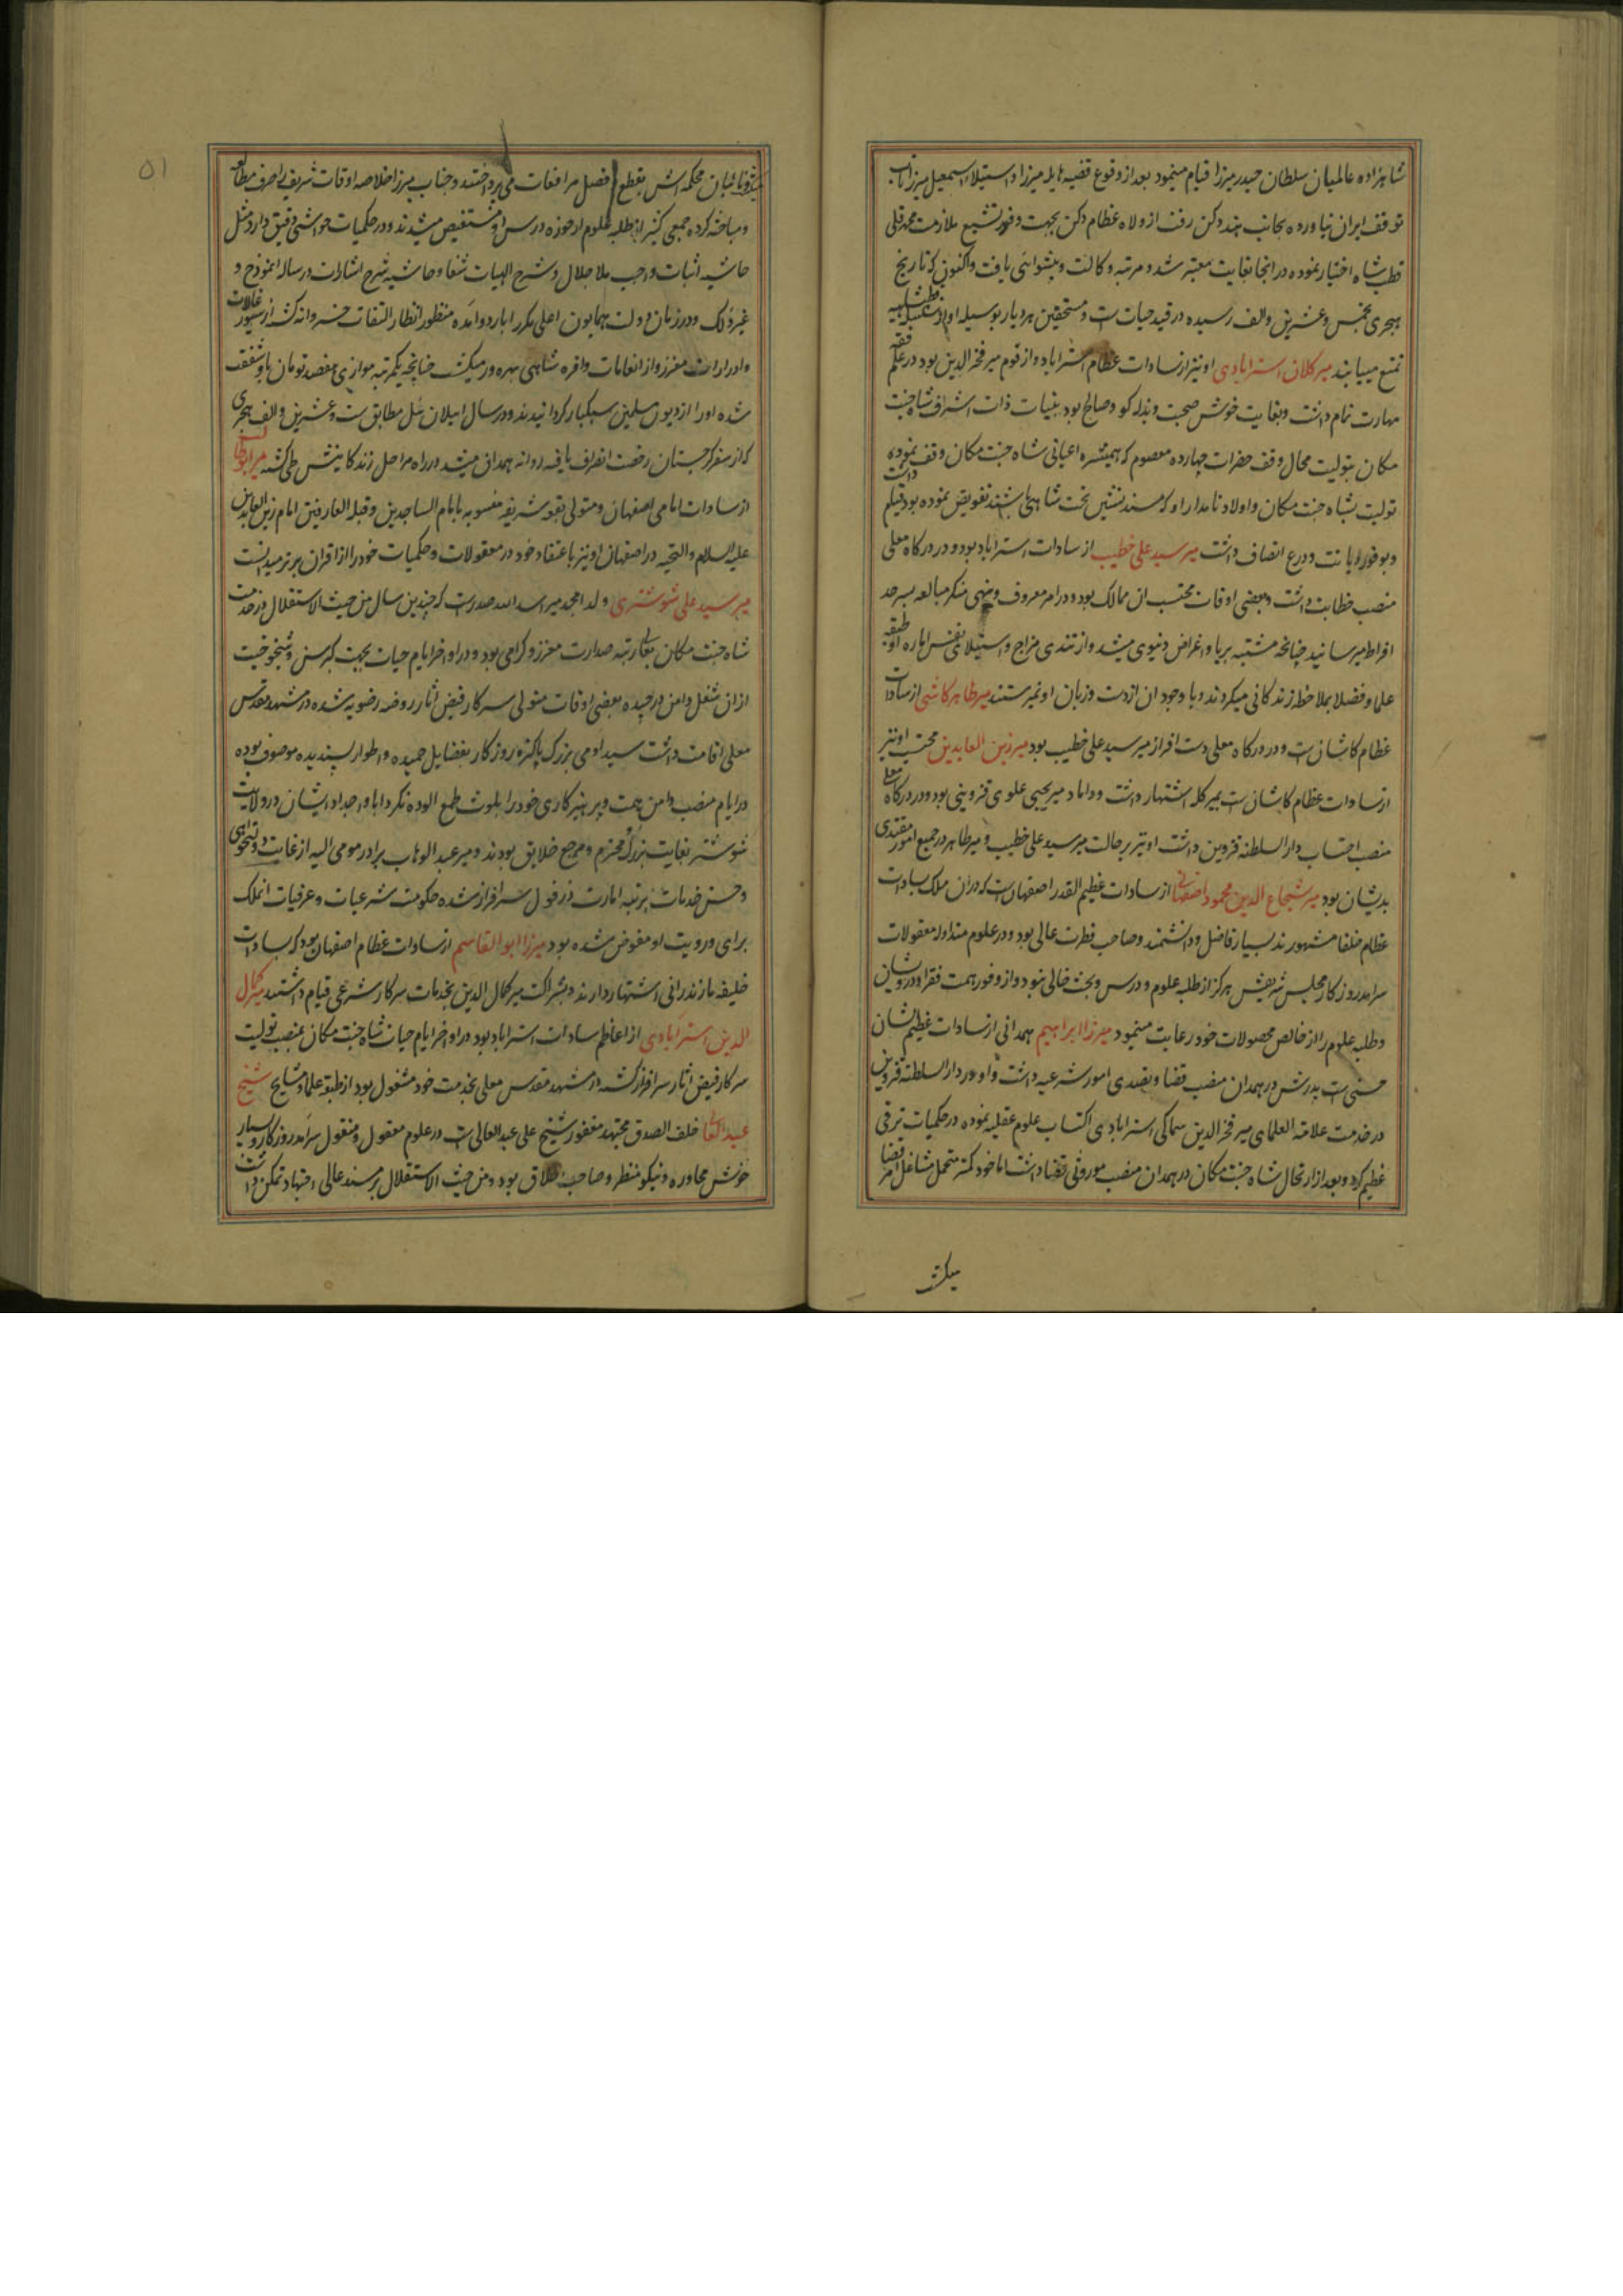 شاهزاده عالمیان سلطان حیدر میرزا قیام مینمود بعد از وقوع قضیه هایله میرزا و استیلا اسمعیل میرزا تاب
توقف ایران نیاورده بجانب هند و دکن رفت از ولاه عظام دکن بجهت وفور تشیع ملازمت محمد قلی
قطب شاه اختیار نموده در انجا بغایت معتبر شد و مرتبه وکالت و پیشوائی یافت و اکنون که تاریخ
هجری بخمس و عشرین و الف رسیده در قید حیات است و مستحقین هر دیار بوسیله او از سلسله قطبشاهیه
تمتع مییابند میر کلان استرابادی او نیز از سادات عظام استراباد و از قوم میر فخر الدین بود در علم فقه
مهارت تمام داشت و بغایت خوش صحبت و بذله کو و صالح بود بنیات ذات اشرف شاه جنت
مکان بتولیت محال وقف حضرات چهارده معصوم که همشیره اعیانی شاه جنت مکان وقف نموده
تولیت بشاه جنت مکان و اولاد نامدار او که مسند نشین تخت شاهی باشند تفویض نموده بود قیام داشت
و بوفور دیانت و ورع اتصاف داشت میر سید علی خطیب از سادات استراباد بود و در درکاه معلی
منصب خطابت داشت و بعضی اوقات محتسب ان ممالک بود و در امر معروف و نهی منکر مبالغه بسرحد
افراط میرسانید چنانچه مشتبه بریا و اغراض دنیوی میشد و از تندی مزاج و استیلای نفس اماره او طبقه
علما و فضلا بملاحظه زندکانی میکردند و با وجود ان از دست و زبان او نمیرستند میر طاهر کاشی از سادات
عظام کاشان است و در درکاه معلی دست افراز میر سید علی خطیب بود میر زین العابدین محتسب او نیز
از سادات عظام کاشان است بمیر کله اشتهار داشت و داماد میر یحیی علوی قزوینی بود و در درکاه معلی
منصب احتساب دار السلطنه قزوین داشت او نیز بر حالت میر سید علی خطیب و میر طاهر در جمیع امور مقتدی
بدیشان بود میر شجاع الدین محمود اصفهانی از سادات عظیم القدر اصفهان است که در ان ملک بسادات
عظام خلفا مشهورند بسیار فاضل و دانشمند و صاحب فطرت عالی بود و در علوم متداوله معقولات
سرامد روزکار مجلس شریفش هرکز از طلبه علوم و درس و بحث خالی نبود و از وفور همت فقرا و درویشان
و طلبه علوم را از خالص محصولات خود رعایت مینمود میرزا ابراهیم همدانی از سادات عظیم الشان
حسنی است پدرش در همدان منصب قضا و تصدی امور شرعیه داشت و او در دار السلطنه قزوین
در خدمت علامة العلمای میر فخر الدین سماکی استرابادی اکتساب علوم عقلیه نموده در حکمیات ترقی
عظیم کرد و بعد از ارتحال شاه جنت مکان در همدان منصب موروثی قضا داشت اما خود کمتر متحمل مشاغل امر قضا
میکشت
۵۱
میشد و نایبان محکمه اش بقطع و فصل مرافعات می پرداختند و جناب میرزا خلاصه اوقات شریف را صرف مطالعه
و مباحثه کرده جمعی کثیر از طلبه علوم از حوزه درس او مستفیض میشدند و در حکمیات حواشی دقیق دارد مثل
حاشیه اثبات واجب ملا جلال و شرح الهیات شفا و حاشیه شرح اشارات و رساله انموذج و
غیر ذلک و در زمان دولت همایون اعلی مکررا باردو امده منظور انظار التفات خسروانه کشته از سیورغالات
و ادرارات معزز و از انعامات وافره شاهی بهره ور میکشت چنانچه یکمرتبه موازی هفصد تومان باو شفقت
شده او را از دیون مسلمین سبکبار کردانیدند و در سال ایلان ئیل مطابق ست و عشرین و الف هجری
که از سفر کرجستان رخصت انصراف یافته روانه همدان میشد در راه مراحل زندکانیش طی کشته میر ابوطالب
از سادات امامی اصفهان و متولی بقعه شریفه منسوبه بامام الساجدین و قبلة العارفین امام زین العابدین
علیه السلام و التحیه در اصفهان او نیز باعتقاد خود در معقولات و حکمیات خود را از اقران برتر میدانست
میر سید علی شوشتری ولد امجد میر اسد الله صدر است که چندین سال من حیث الاستقلال در خدمت
شاه جنت مکان بعالی رتبه صدارت معزز و کرامی بود و در اواخر ایام حیات بجهت کبر سن و شیخوخیت
از ان شغل دامن درچیده بعضی اوقات متولی سرکار فیض اثار روضه رضویه شده در مشهد مقدس
معلی اقامت داشت سید ادمی بزرک پاکیزه روزکار بفضایل حمیده و اطوار پسندیده موصوف بوده
در ایام منصب دامن همت و پرهیزکاری خود را بلوث طمع الوده نکرد ابا و اجداد ایشان در ولایت
شوشتر بغایت بزرک و محترم و مرجع خلایق بودند و میر عبد الوهاب برادر مومی الیه از غایت دولتخواهی
و حسن خدمات برتبه امارت دزفول سرافراز شده حکومت شرعیات و عرفیات انملک
برای و رویت او مفوض شده بود میرزا ابو القاسم از سادات عظام اصفهان بود که بسادات
خلیفه مازندرانی اشتهار دارند و بشراکت میر کمال الدین بخدمات سرکار شرعی قیام داشتند میر کمال
الدین استرابادی از اعاظم سادات استراباد بود در اواخر ایام حیات شاه جنت مکان بمنصب تولیت
سرکار فیض اثار سرافراز کشته در مشهد مقدس معلی بخدمت خود مشغول بود از طبقه علما و مشایخ شیخ
عبد العالی خلف الصدق مجتهد مغفور شیخ علی عبد العالی است در علوم معقول و منقول سرامد روزکار و بسیار
خوش محاوره و نیکو منظر و صاحب اخلاق بود و من حیث الاستقلال بر مسند عالی اجتهاد تمکن داشت